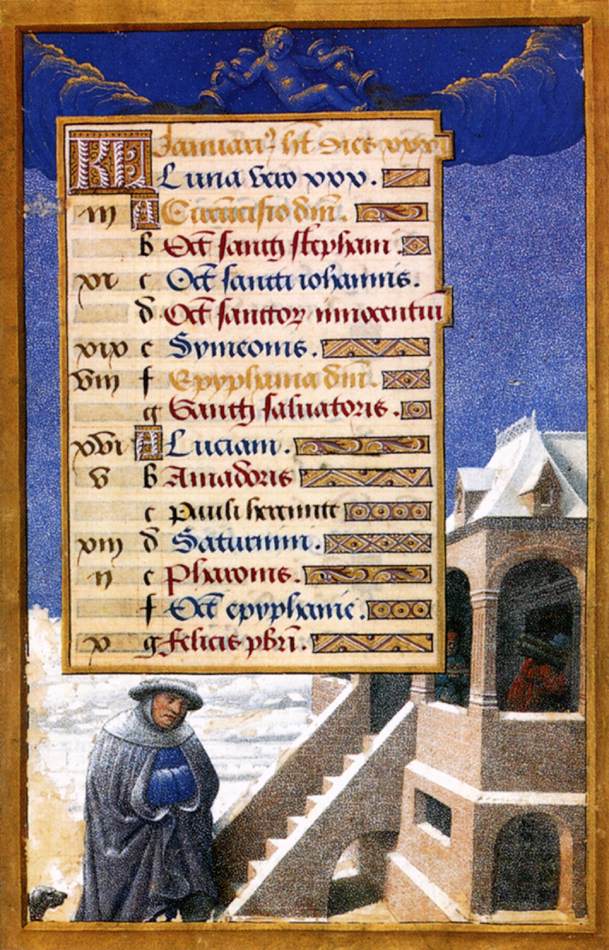 KL Januari9 ht dies xxxi
Luna vero xxx.
iii A Circu̅cisio dni̅.
b Oct̅ sancti stephani.
xi c Oct̅ sancti iohannis.
d Oct̅ sanctoꝝ innocentiu̅
xix e Symeonis.
viii f Epyphania dni̅.
g Sancti saluatoris.
xvi A Luciani.
v b Amadoris
c Pauli heremite
xiii d Saturnini.
ii e Pharonis.
f Oct̅ epyphanie.
x g felicis pbri̅.